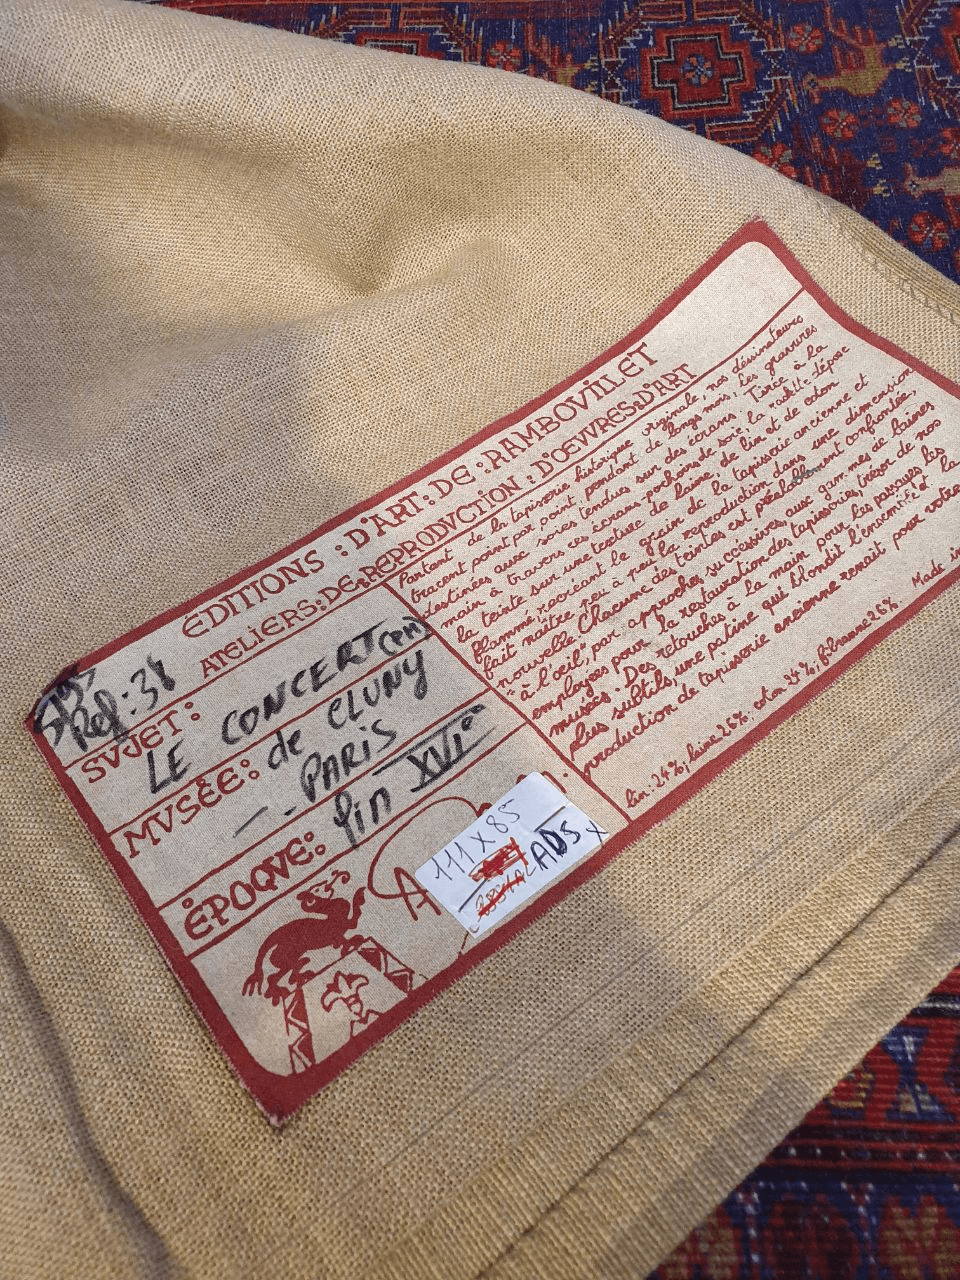 ÉDITIONS : D'ART : DE : RAMBOVILLET
ATELIERS : DE : REPRODVCTION : D'OEVVRES : D'ART
Réf : 38
SVJET :
LE CONCERT
MVSÉE : de CLUNY
-- PARIS
ÉPOQVE : fin XVIe
111 X 85
ADS
Partant de la tapisserie historique originale, nos déssinateurs
tracent point par point, pendant de longs mois, les gravures
destinées aux soies tendues sur des écrans. Tirée à la
main à travers ces écrans-pochons de soie, la raclette dépose
la teinte sur une texture de laine, de lin et de coton
flammé, recréant le grain de la tapisserie ancienne et
fait naître peu à peu la reproduction dans une dimension
nouvelle. Chacune des teintes est préalablement confrontée,
"à l'oeil", par approches successives, aux gammes de laines
employées pour la restauration des tapisseries, trésor de nos
musées. Des retouches à la main pour les passages les
plus subtils, une patine qui blondit l'ensemble et la
production de tapisserie ancienne renaît pour votre
Made in
lin 24%, laine 26%, coton 24%, fibranne 26%.